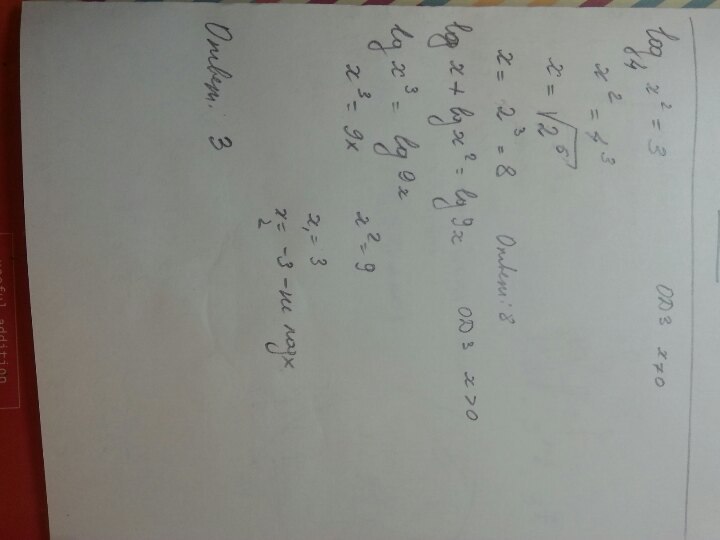 log₄ x² = 3 ОДЗ x≠0
x² = 4³
x = √2⁶
x = 2³ = 8 Ответ: 8
lg x + lg x² = lg 9x ОДЗ x>0
lg x³ = lg 9x
x³ = 9x x² = 9
x₁ = 3
x₂ = -3 - не подх
Ответ: 3
useful addition